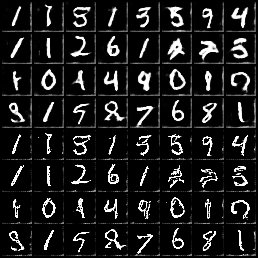 1 1 3 1 3 5 9 4
1 1 2 6 1 3
1 0 1 4 9 0 1 2
9 1 5 2 7 6 8 1
1 1 3 1 3 5 9 4
1 1 2 6 1 3
1 0 4 9 0 1 2
9 1 5 2 7 6 8 1